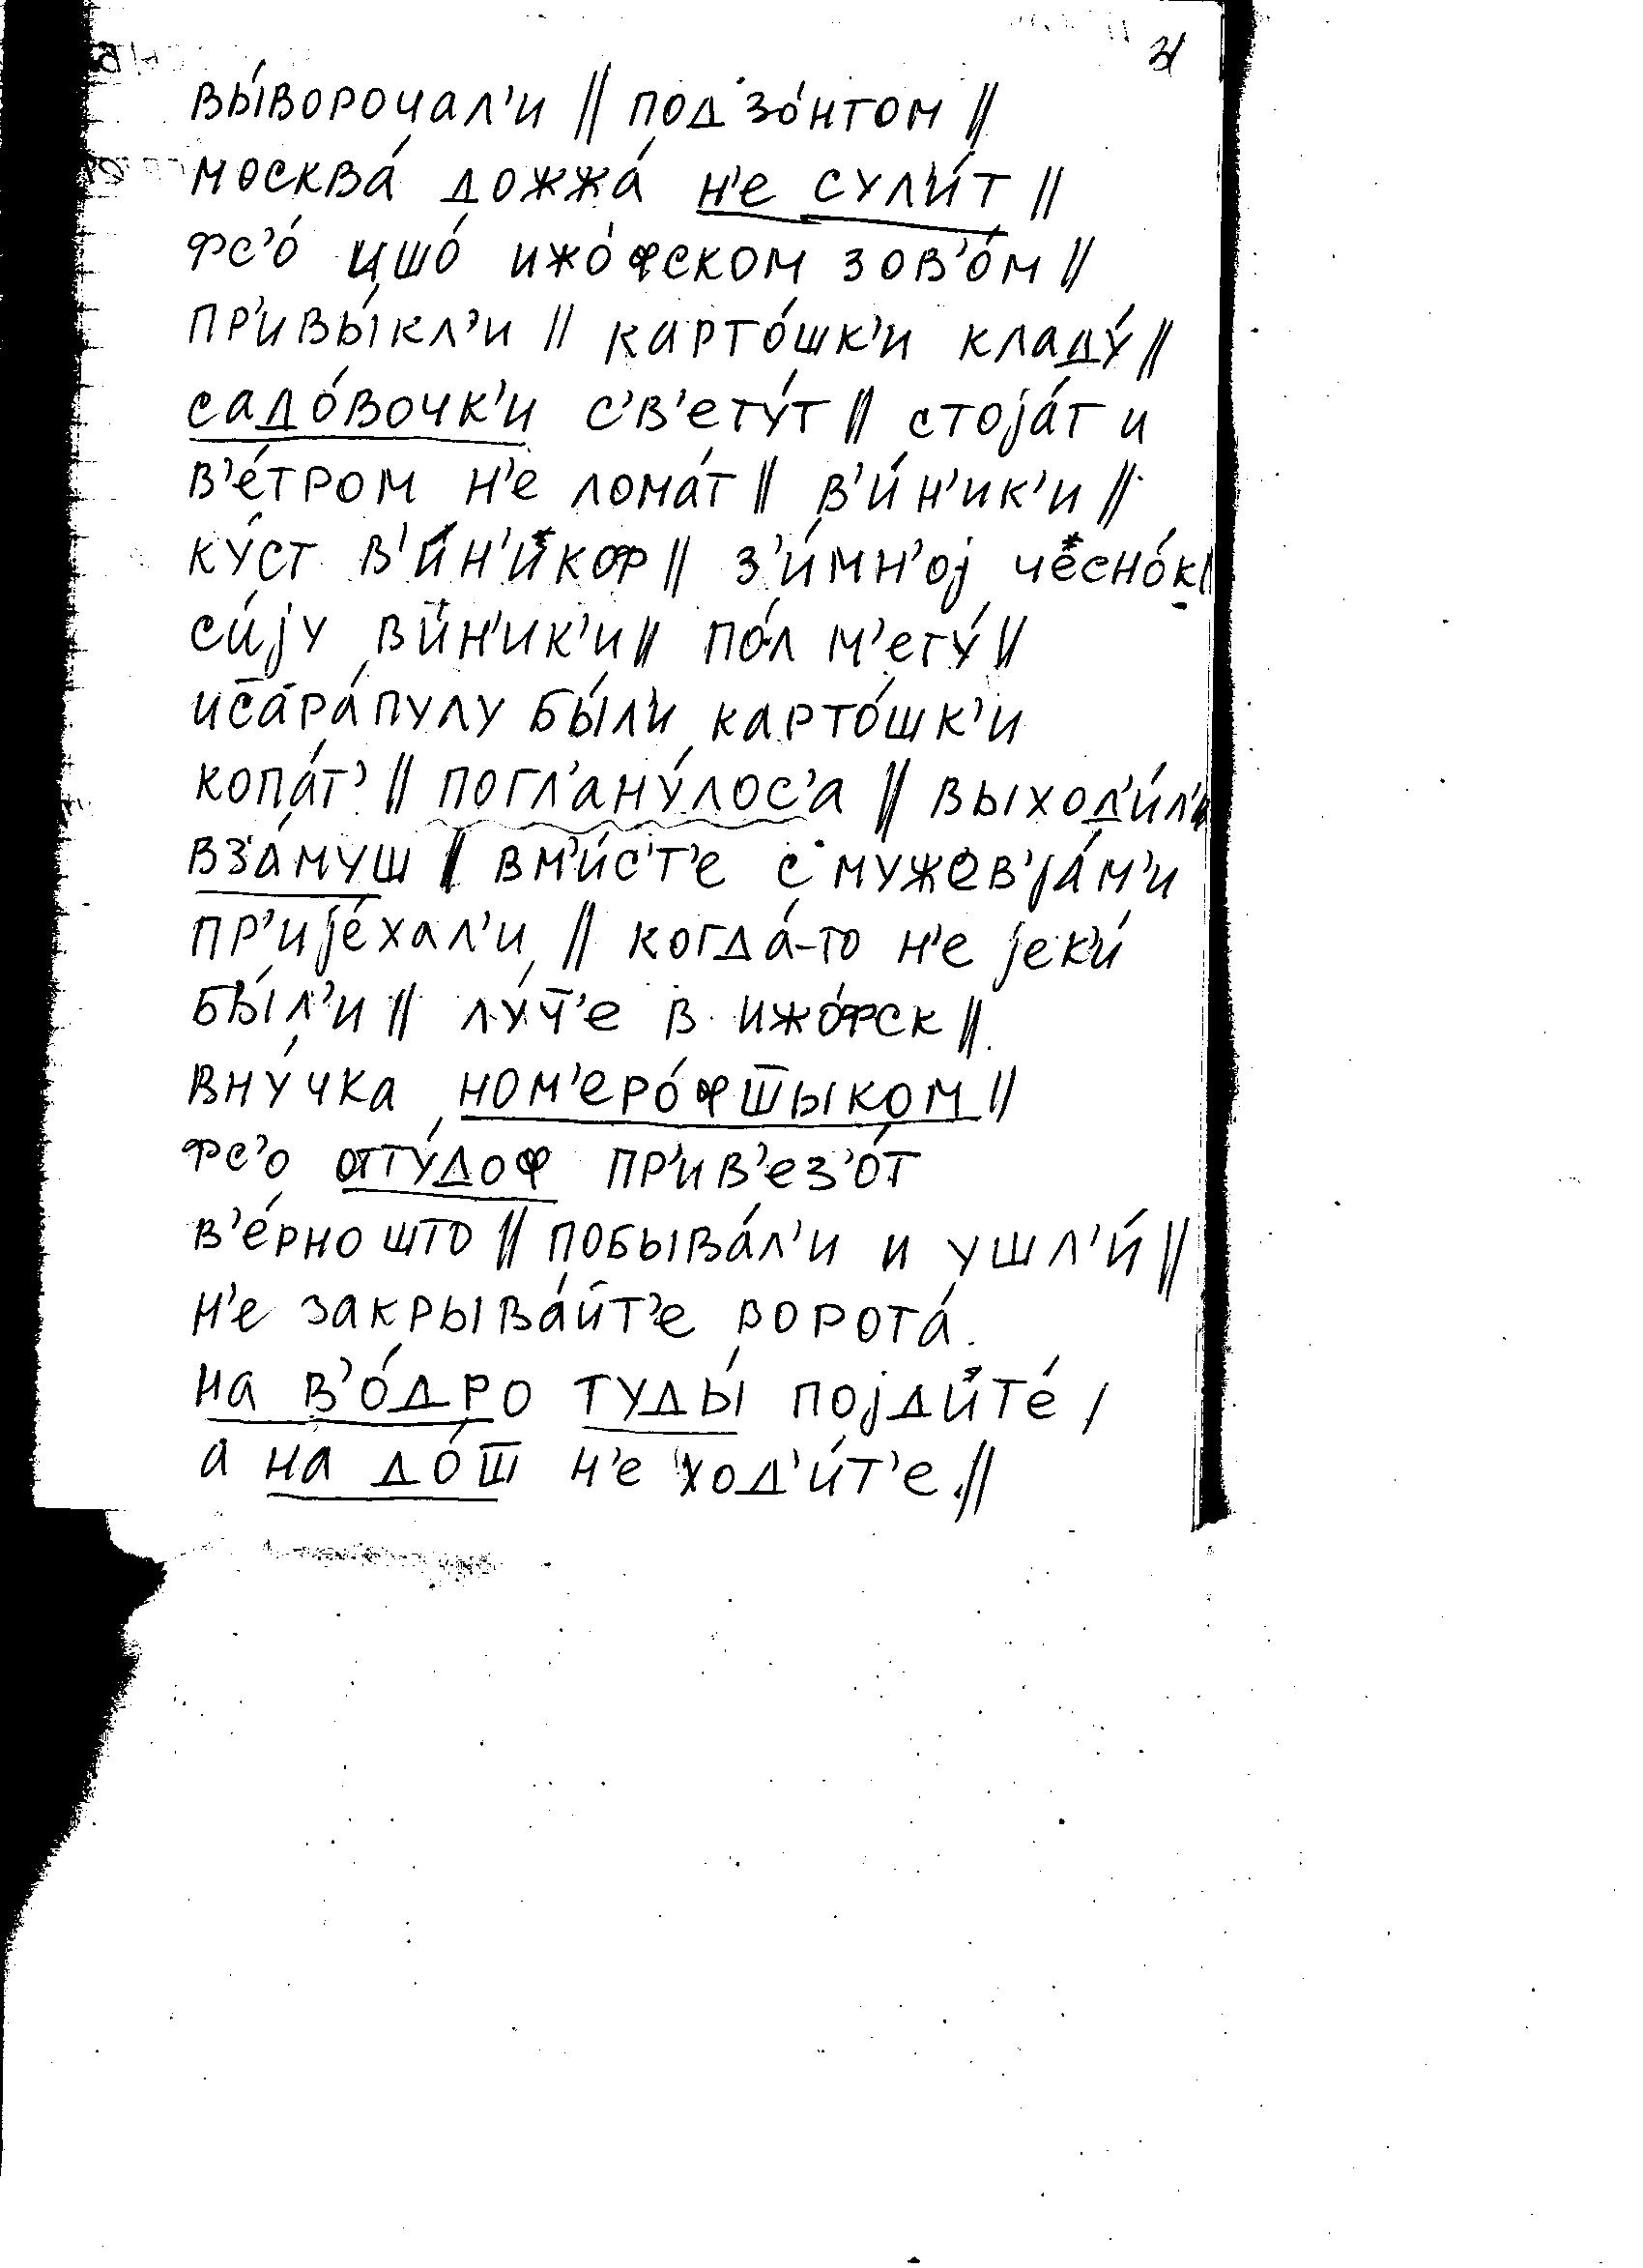 31
вы́ворочал'и || под зо́нтом ||
москва́ дожжа́ н'е сул'и́т ||
фс'о́ ишо́ ижо́фском зов'о́м ||
пр'ивы́кл'и || карто́шк'и кладу́ ||
садо́вочк'и с'в'ету́т || стоја́т и
в'е́тром н'е лома́т || в'и́н'ик'и ||
ку́ст в'и́н'икоф || з'и́мн'ој чесно́к ||
си́ју в'и́н'ик'и || по́л м'ету́ ||
ис̄ара́пулу бы́л'и карто́шк'и
копа́т' || погл'ану́лос'а || выход'и́л'и
вза́муш || вм'и́с'т'е с мужев'ја́м'и
пр'ије́хал'и || когда́-то н'е јек'и́
бы́л'и || лу́ч̄'е в ижо́фск ||
вну́чка ном'еро́фш̄ыком ||
фс'о отту́доф пр'ив'ез'о́т
в'е́рно што || побыва́л'и и ушл'и́ ||
н'е закрыва́йт'е ворота́.
на в'о́дро туды́ појдите́ /
а на до́ш̄ н'е ход'и́т'е. ||